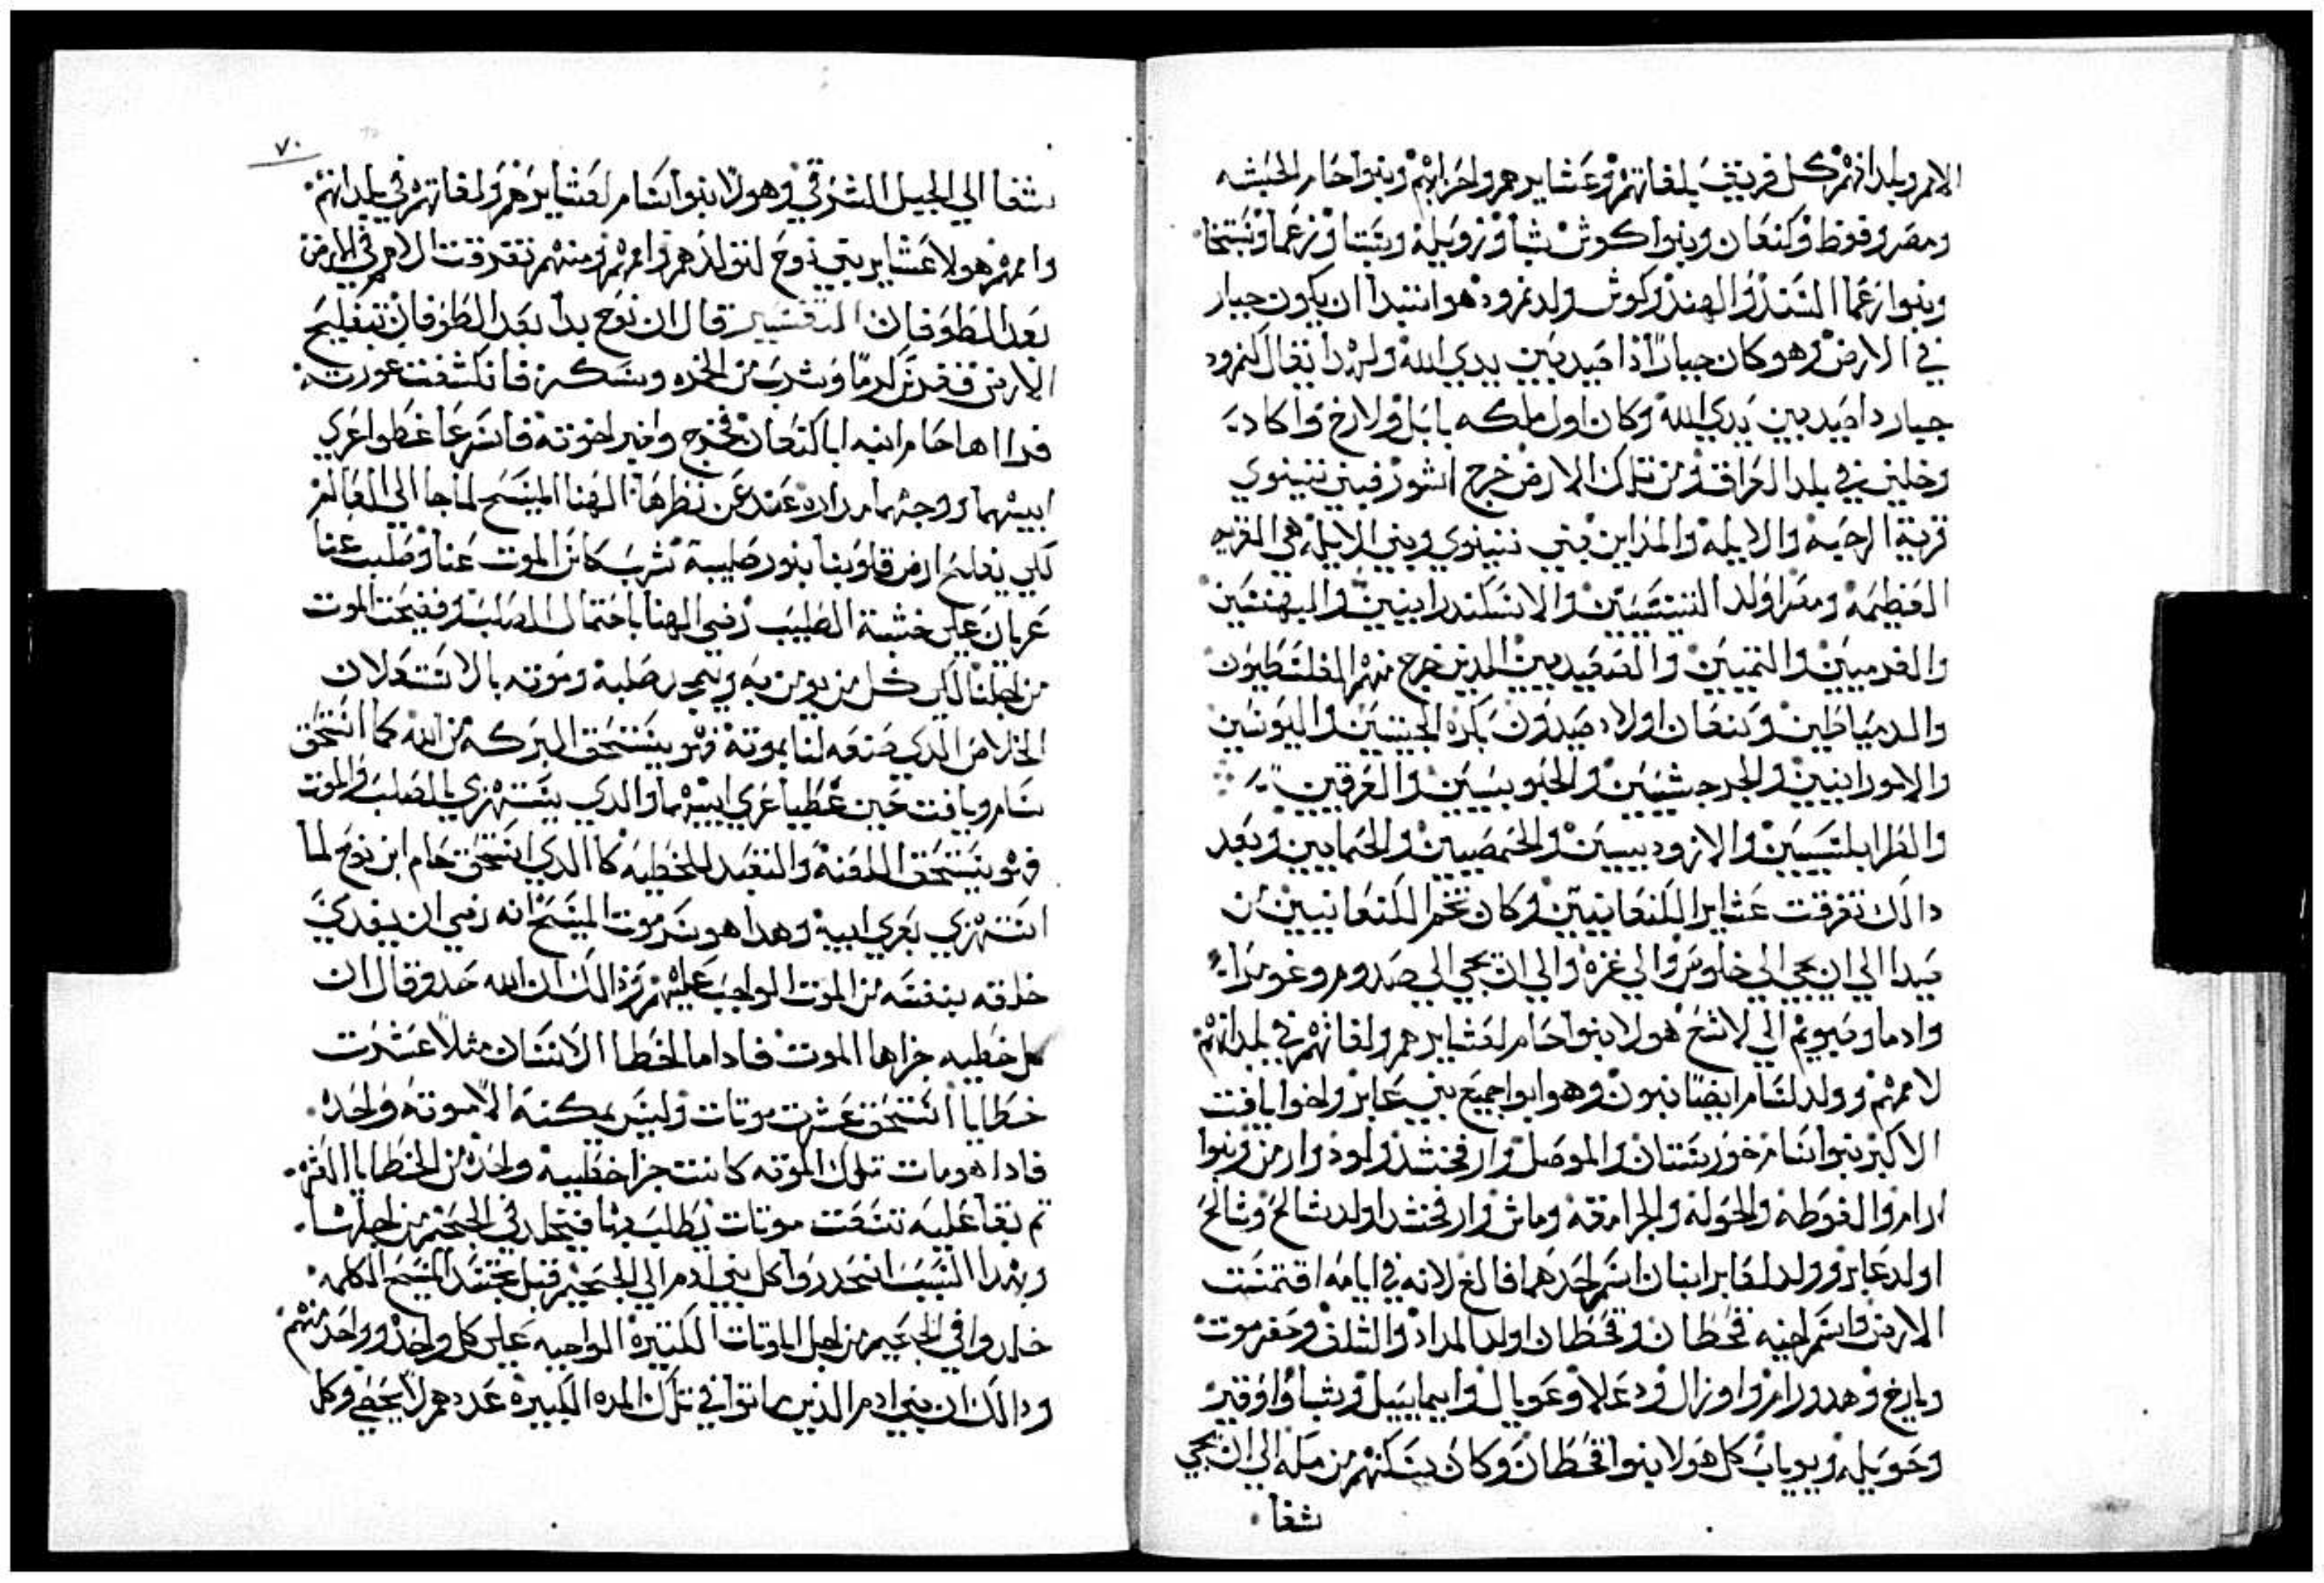 الامر وبلدانهم كل فريق بلغاتهم وعشايرهم واحزابهم وبنوا حام الحبشه
ومصر وفوظ وكنعان وبنوا كوش شبا وزويله وسبتا وزعما وسبتخا
وبنوا زعما السند والهند وكوش ولد نمرود هو ابتدا ان يكون جبار
في الارض وهو كان جبارًا اذا صيد بين يدي الله ولهدا يقال كنمرود
جبار دا صيد بين يدي الله وكان اول ملكه بابل ولارخ واكاد
وخلين في بلد العراق ومن تلك الارض خرج اشور فبني نينوي
قرية الرحبة والايله والمداين فبني نينوي وبني الايله هي القريه
العظيمه ومصر اولد التنتسين والاسكندرانيين والبهنسين
والفرميين والتميين والصعيديين الدين خرج منهم الفلسطيون
والدمياطين وكنعان اولاد صيدون بكره الحيتيين واليونسين
والامورانيين والجرجشيين والحبوبسيين والعرقين
والطرابلسيين والازوديسيين والحمصيين والحمايين وبعد
دالك تفرقت عشاير الكنعانيين وكان تخم الكنعانيين من
صيدا الي ان يجي الي خلوس والي غزه والي ان يجي الي صدوم وغومرا
وادما وصبويم الي لاشع هولا بنوا حام لعشايرهم ولغاتهم في بلدانهم
لاممهم وولد لسام ايضا بنون وهو ابوا جميع بني عابر واخوا يافت
الاكبر بنوا سام خورستان والموصل وارفخشد ولود وارمن وبنوا
ارام والغوطه والحوله والجرامقه وماش وارفخشد اولد شالح وشالح
اولد عابر وولد لعابر ابنان اسم احدهما فالغ لانه في ايامه اقتسمت
الارض واسم اخيه قحطان وقحطان اولد المداد والشلف وحضرموت
ويارخ وهدورام واوزال ودعلا وعوبال وايماييل وشبا واوفير
وحويله ويوباب كل هولا بنوا قحطان وكان يسكنهم من مله الي ان يجي
شغا
٧٠
شغا الي الجبل الشرقي وهولا بنوا سام لعشايرهم ولغاتهم في بلدانهم
واممهم هولا عشاير بني نوح لتولدهم واممهم ومنهم تفرقت الامم في الارض
بعد الطوفان التفسير قال ان نوح بدا بعد الطوفان بتفليح
الارض فغرس كرمًا وشرب من الخمره وسكر فانكشفت عورته
فراها حام ابنه ابا كنعان فخرج واخبر اخوته فاسرعا غطوا عري
ابيهما ووجهما مداره عند عن نظرها الهنا المسيح لما جا الي العالم
لكي يفلح ارض قلوبنا بنور صليبه شرب كاس الموت عنا وصلب عنا
عريان علي خشبة الصليب رضي الهنا باحتمال الصلب وفضيحت الموت
من اجلنا لكي كل من يومن به ويمجد صلبه وموته بالاستعلان
الخلاص الدي صنعه لنا بموته فهو يستحق البركه من الله كما استحق
سام ويافت حين غطيا عري ابيهما والدي يستهزي بالصلب والموت
فهو يستحق اللعنه والتعبد للخطيه كا الدي استحق حام ابن نوح لما
استهزي بعري ابيه وهدا هو سر موت المسيح انه رضي ان يفدي
خلقه بنفسه من الموت الواجب عليهم ودالك ان الله حد وقال ان
كل خطيه جزاها الموت فادا ما اخطا الانسان مثلاً عشرت
خطايا استحق عشرت موتات وليس يمكنه الا موته واحده
فادا هو مات تلك الموته كانت جزا خطيه واحده من الخطايا العشره
تم بقا عليه تسعت موتات يطلب بها فيخلد في الجحيم من اجلها
وبهدا السبب انحدروا كل بني ادم الي الجحيم قبل تجسد المسيح الكلمه
خلدوا في الجحيم من اجل الموتات الكثيره الواجبه علي كل واحد وواحد منهم
ودالك ان بني ادم الدين ماتوا في تلك المده الكبيره عددهم لا يحصي وكل